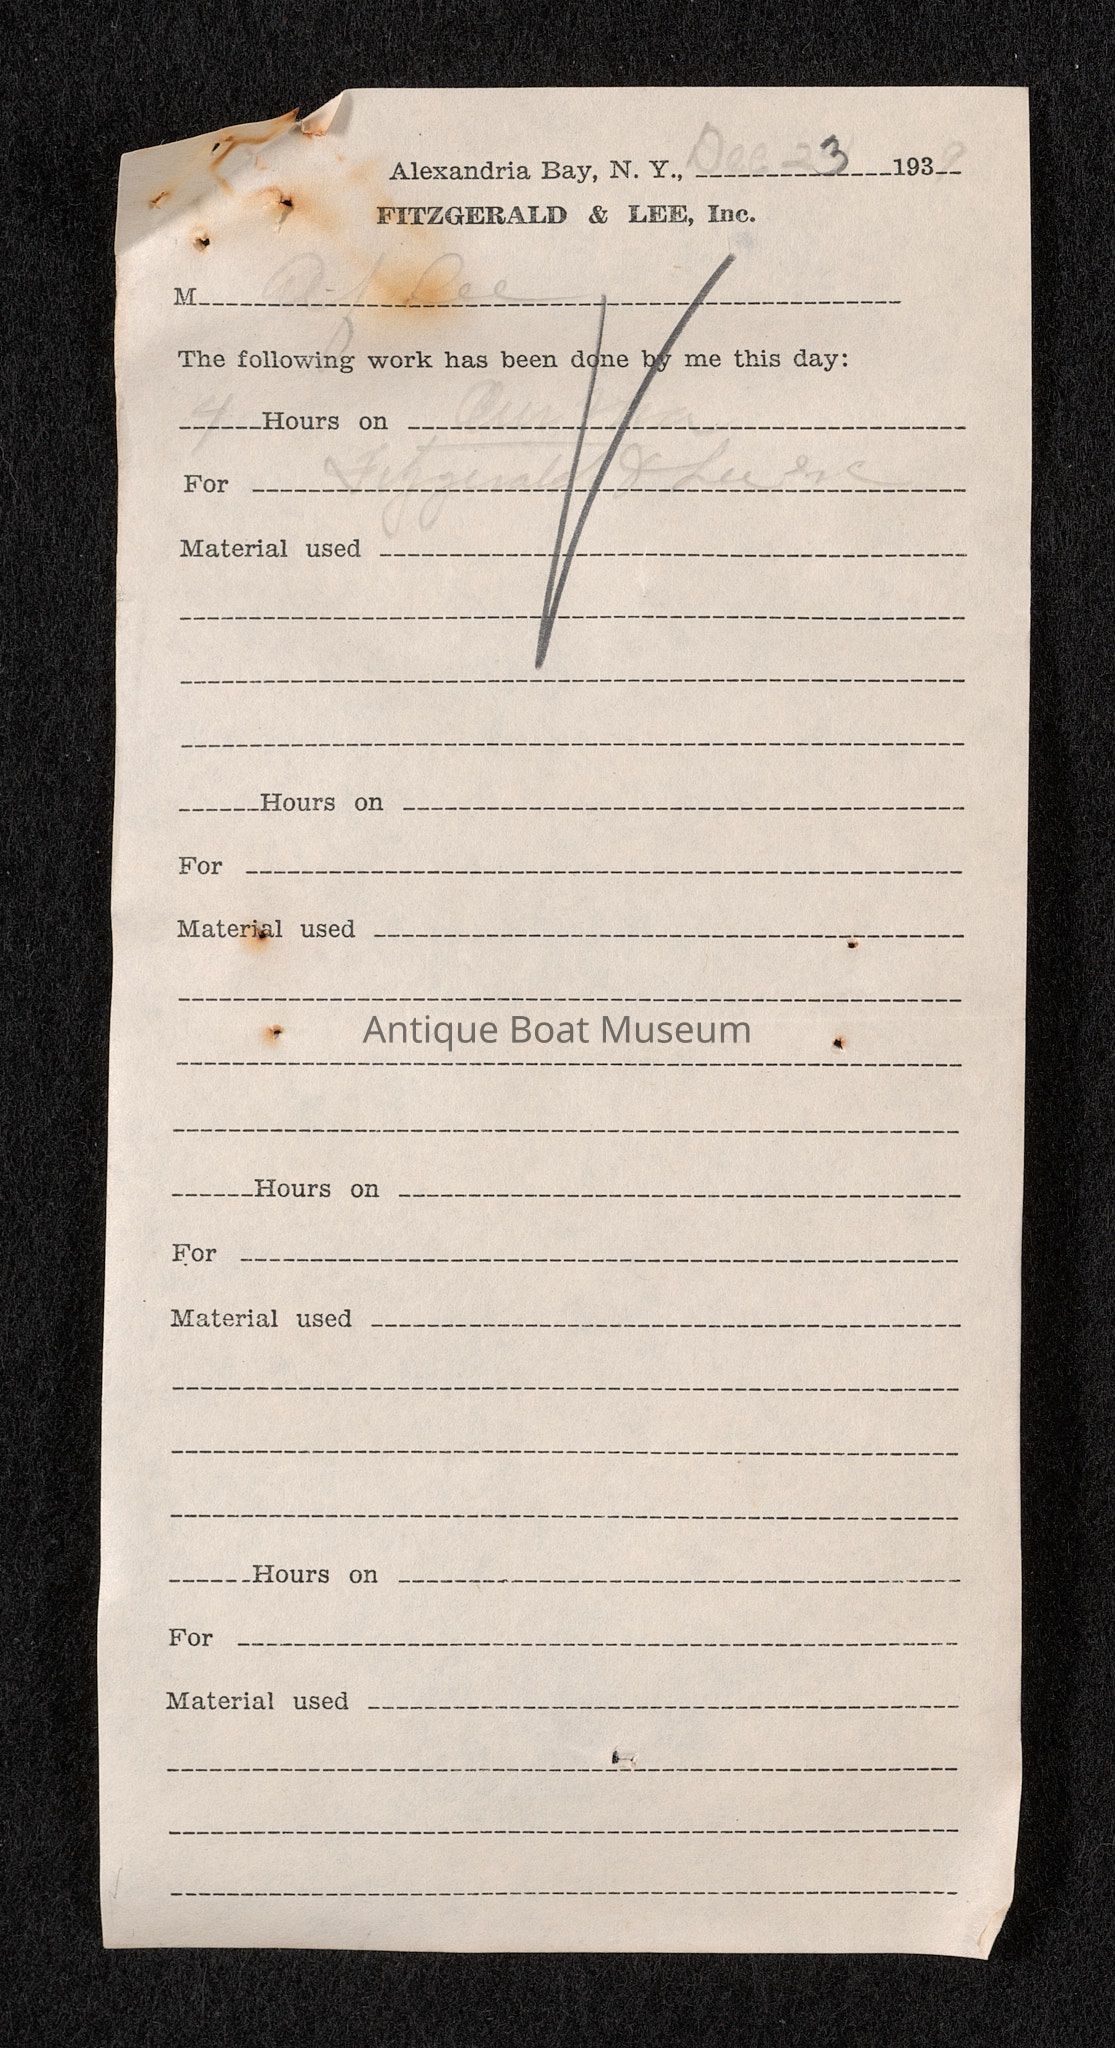 Alexandria Bay, N. Y., Dec 23 1939
FITZGERALD & LEE, Inc.
M Lee
The following work has been done by me this day:
4 Hours on
For Fitzgerald & Lee Inc
Material used
Hours on
For
Material used
Antique Boat Museum
Hours on
For
Material used
Hours on
For
Material used